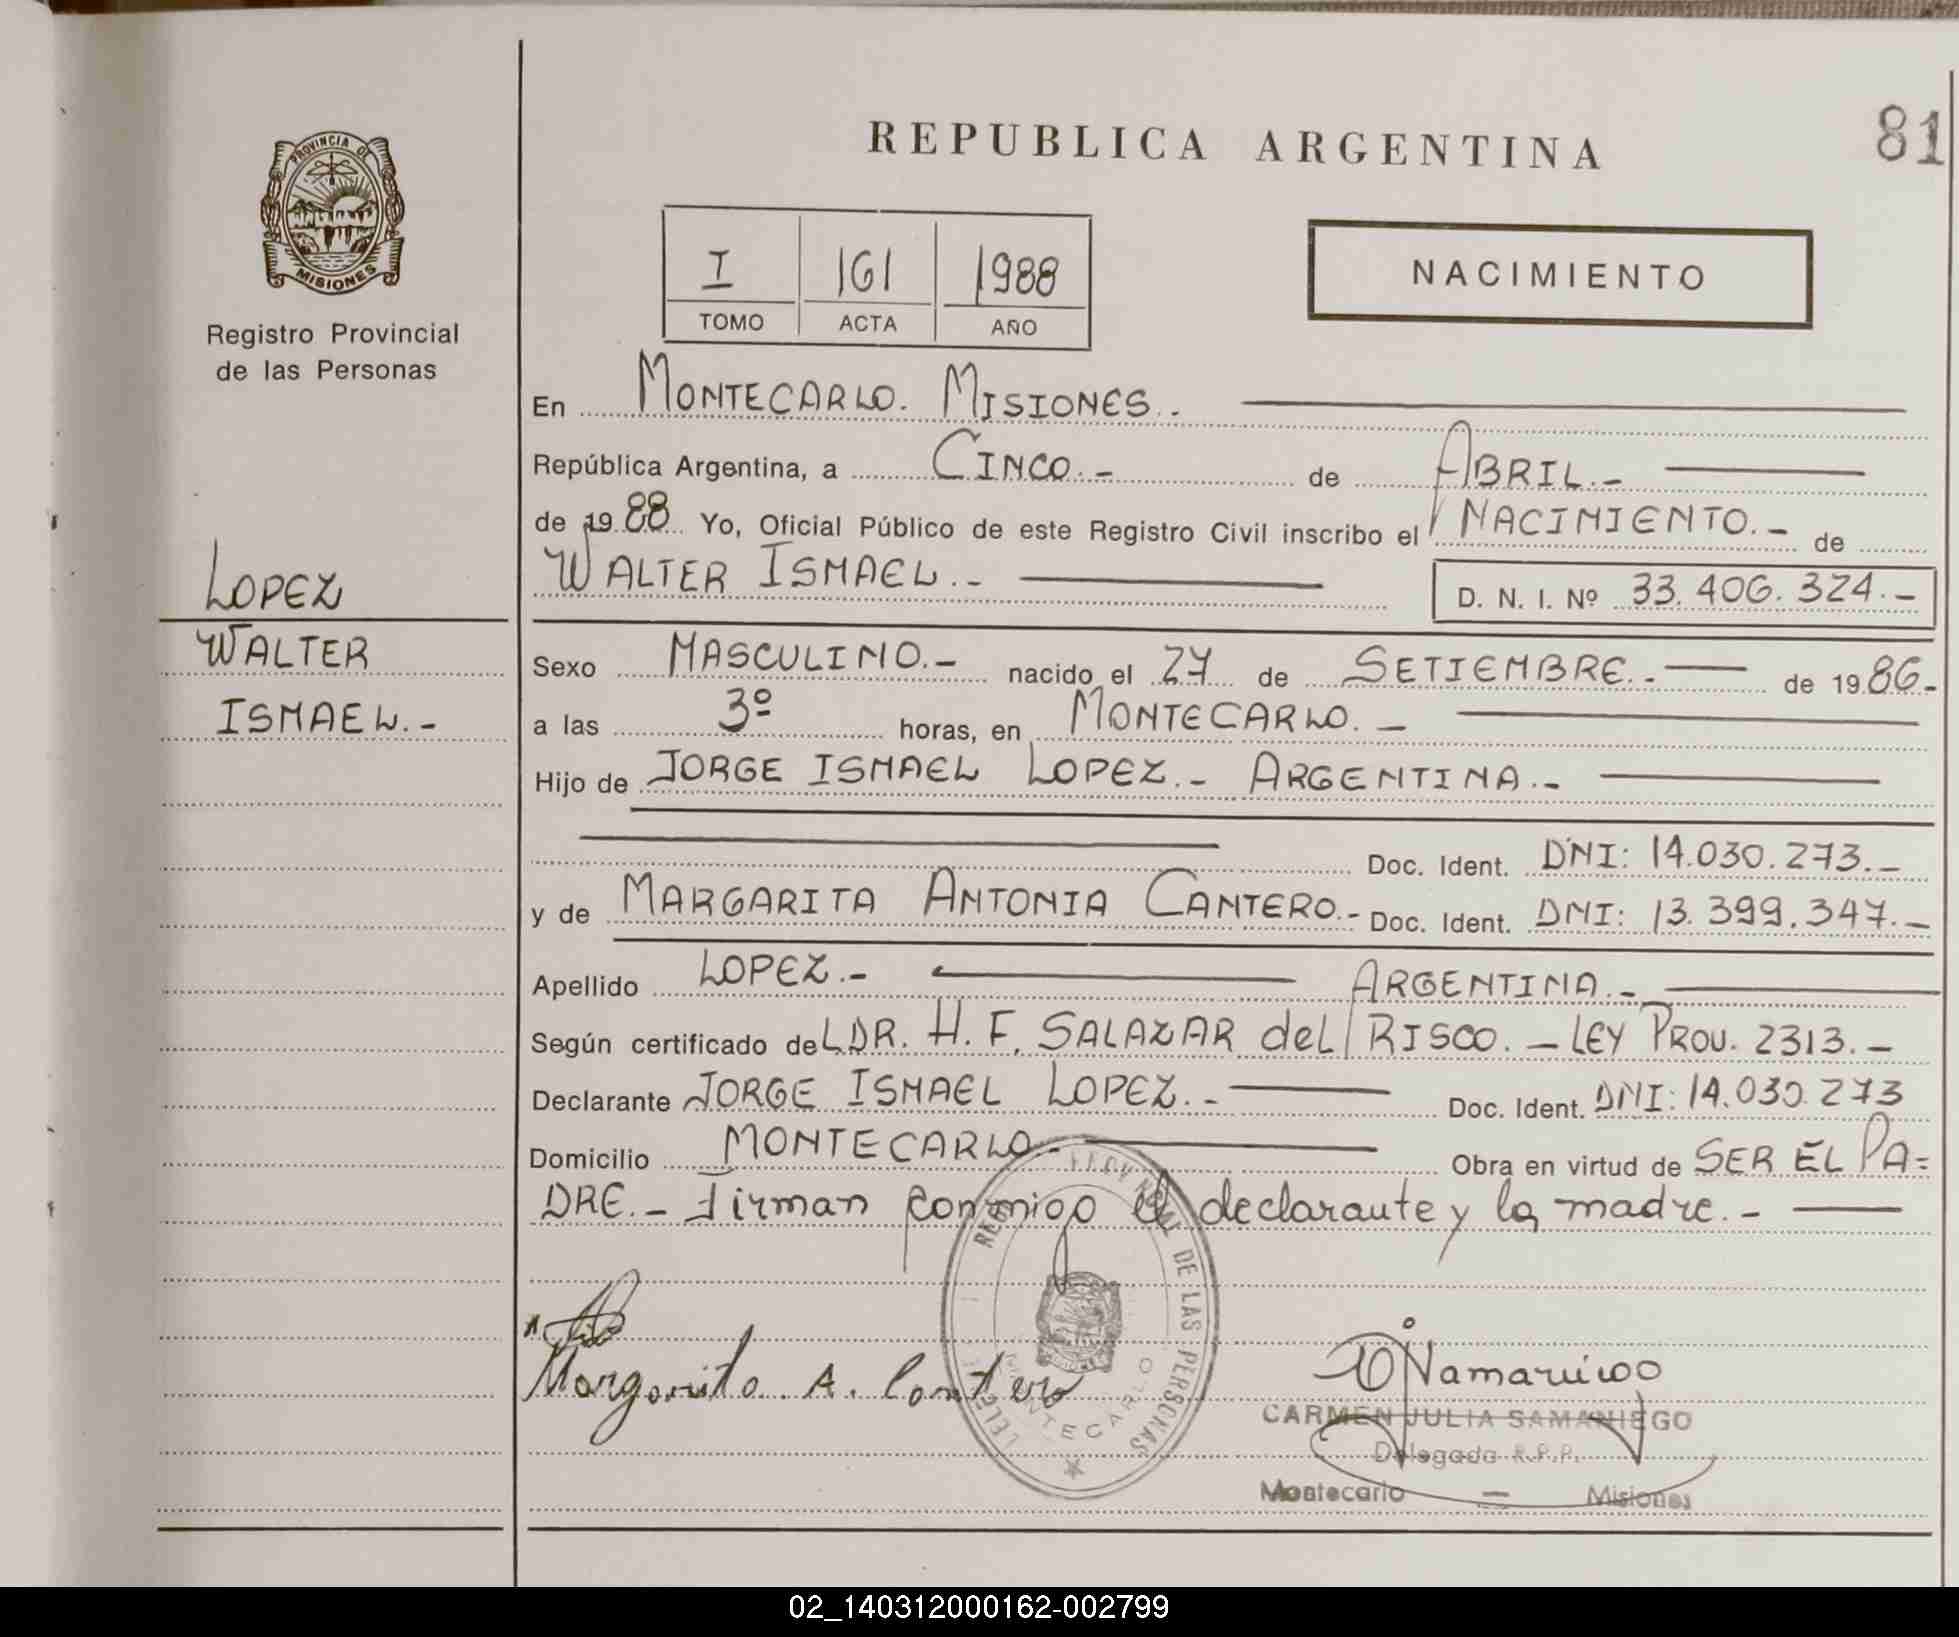 REPUBLICA ARGENTINA
81
PROVINCIA DE
MISIONES
Registro Provincial
de las Personas
I 161 1988
TOMO ACTA AÑO
NACIMIENTO
En MONTECARLO. MISIONES.-
República Argentina, a CINCO.- de ABRIL.-
de 1988 Yo, Oficial Público de este Registro Civil inscribo el NACIMIENTO.- de
WALTER ISMAEL.- D. N. I. Nº 33.406.324.-
LOPEZ
WALTER
ISMAEL.-
Sexo MASCULINO.- nacido el 27 de SETIEMBRE.- de 1986.-
a las 3º horas, en MONTECARLO.-
Hijo de JORGE ISMAEL LOPEZ.- ARGENTINA.-
Doc. Ident. DNI: 14.030.273.-
y de MARGARITA ANTONIA CANTERO.- Doc. Ident. DNI: 13.399.347.-
Apellido LOPEZ.- ARGENTINA.-
Según certificado del DR. H. F. SALAZAR del RISCO.- LEY PROV. 2313.-
Declarante JORGE ISMAEL LOPEZ.- Doc. Ident. DNI: 14.030.273
Domicilio MONTECARLO.- Obra en virtud de SER EL PA=
DRE.- Firman conmigo el declarante y la madre.-
DE LAS PERSONAS
MONTECARLO
Margarita A. Cantero
CARMEN JULIA SAMANIEGO
Delegada R.P.P.
Montecarlo — Misiones
02_140312000162-002799